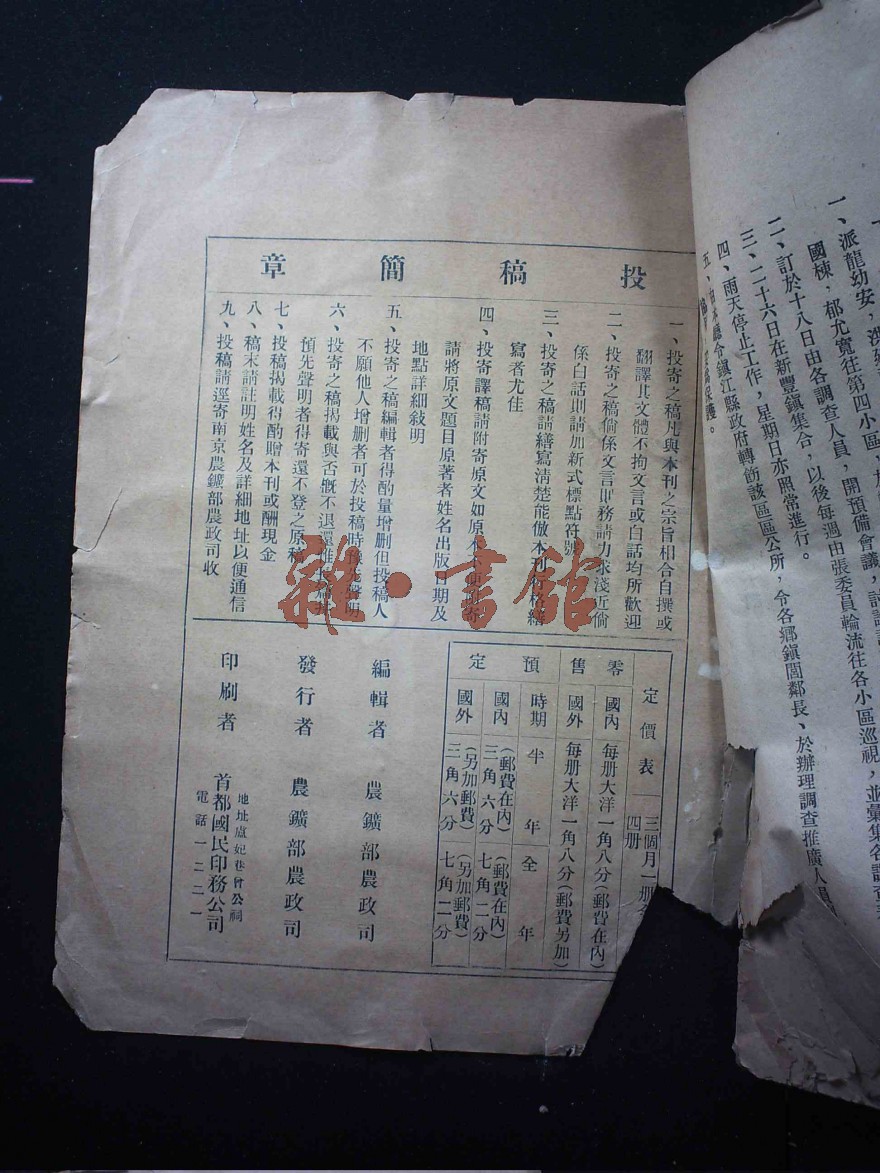 派龍幼安，
國棟，郁尤寬往第四小區，
二、訂於十八日由各調查人員，開預備會議，
三、二十六日在新豐鎮集合，以後每週由張委員輪流往各小區巡視，並彙集各調查
四、雨天停止工作，星期日亦照常進行。
五、 廳令鎮江縣政府轉飭該區區公所，令各鄉鎮閭鄰長、於辦理調查推廣人員
保護。
投稿簡章
一、投寄之稿凡與本刊之宗旨相合自撰或
翻譯其文體不拘文言或白話均所歡迎
二、投寄之稿倘係文言則務請力求淺近倘
係白話則請加新式標點符號
三、投寄之稿請繕寫清楚能倣本刊行格繕
寫者尤佳
四、投寄譯稿請附寄原文如原本 寄
請將原文題目原著者姓名出版日期及
地點詳細敍明
五、投寄之稿編輯者得酌量增刪但投稿人
不願他人增刪者可於投稿時預先聲明
六、投寄之稿揭載與否概不退還惟
預先聲明者得寄還不登之原稿
七、投稿揭載得酌贈本刊或酬現金
八、稿末請註明姓名及詳細地址以便通信
九、投稿請逕寄南京農鑛部農政司收
定價表 三個月一册 四册
零售 國內 每册大洋一角八分(郵費在內)
國外 每册大洋一角八分(郵費另加)
預定 時期 半年 全年
國內 (郵費在內)三角六分 (郵費在內)七角二分
國外 (另加郵費)三角六分 (另加郵費)七角二分
編輯者 農鑛部農政司
發行者 農鑛部農政司
印刷者 首都國民印務公司
地址盧妃巷曾公祠
電話一二二一
雜·書館